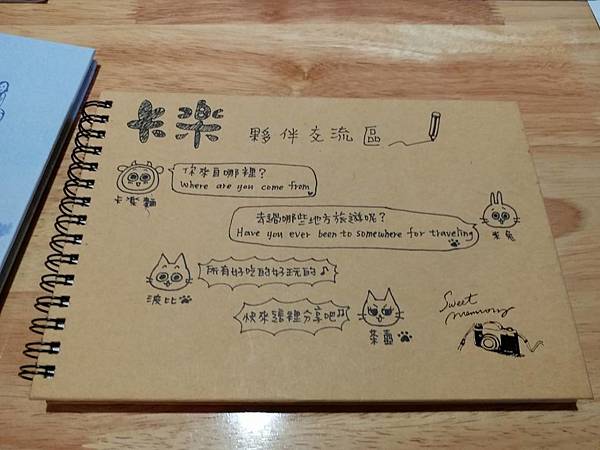 卡樂 夥伴交流區
你來自哪裡?
Where are you come from
卡麥麵
去過哪些地方旅遊呢?
Have you ever been to somewhere for traveling
米兔
所有好吃的好玩的♪
波比
快來這裡分享吧♫
茶壺
Sweet
memory